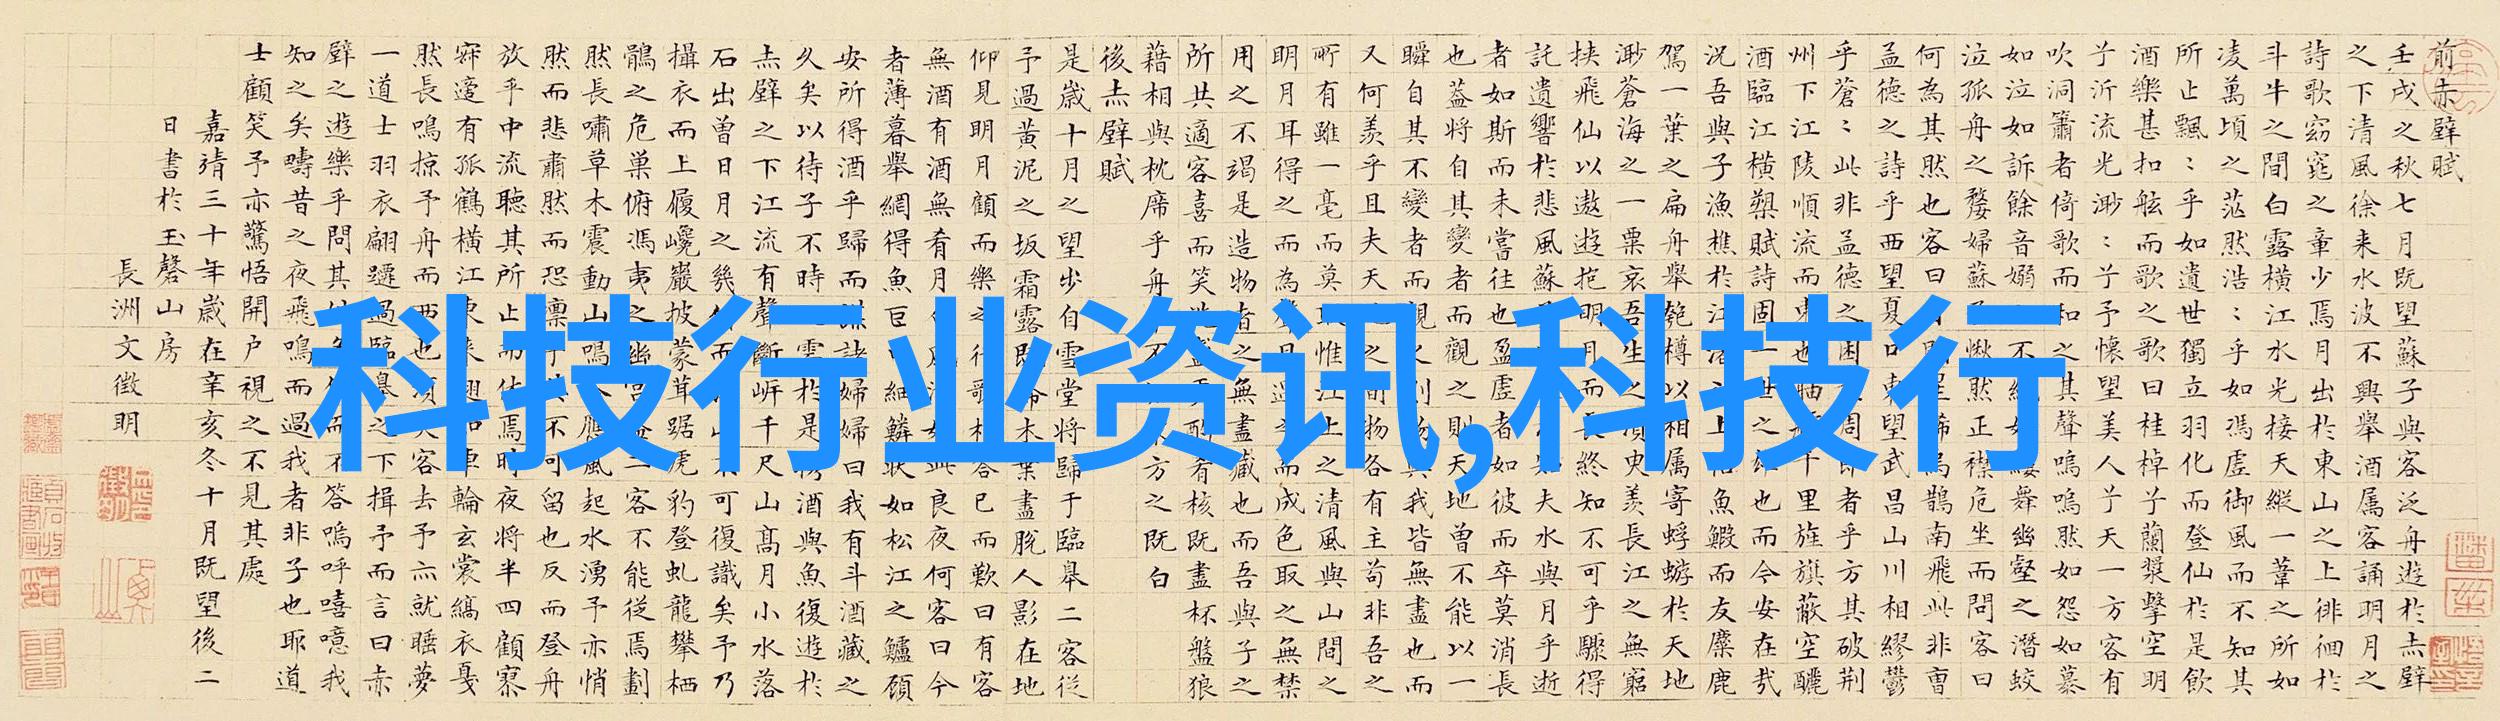 前赤壁賦
壬戌之秋七月既望蘇子與客泛舟遊於赤壁
之下清風徐来水波不興舉酒属客誦明月之
詩歌窈窕之章少焉月出於東山之上徘徊於
斗牛之間白露橫江水光接天縱一葦之所如
凌萬頃之茫然浩:乎如馮虛御風而不知其
所止飄:乎如遺世獨立羽化而登仙於是飲
酒樂甚扣舷而歌之歌曰桂棹兮蘭槳擊空明
兮泝流光渺:兮予懷望美人兮天一方客有
吹洞簫者倚歌而和之其聲嗚嗚然如怨如慕
如泣如訴餘音嫋不絕如縷舞幽壑之潛蛟
泣孤舟之嫠婦蘇子愀然正襟危坐而問客曰
何為其然也客曰明星稀烏鵲南飛此非曹
孟德之詩乎西望夏口東望武昌山川相繆鬱
乎蒼:此非孟德之困周郎者乎方其破荊
州下江陵順流而東也舳千里旌旗蔽空釃
酒臨江橫槊賦詩固一世之雄也而今安在哉
況吾與子漁樵於江渚之上侶魚鰕而友麋鹿
駕一葉之扁舟舉匏樽以相属寄蜉蝣於天地
渺蒼海之一粟哀吾生之須臾羨長江之無窮
挟飛仙以遨遊抱明月而長終知不可乎驟得
託遺響於悲風蘇知夫水與月乎逝
者如斯而未嘗往也盈虛者如彼而卒莫消長
也蓋將自其變者而觀之則天地曾不能以一
瞬自其不變者而觀之則物與我皆無盡也而
又何羨乎且夫天地之間物各有主苟非吾之
所有雖一毫而莫取惟江上之清風與山間之
明月耳得之而為聲目遇之而成色取之無禁
用之不竭是造物者之無盡藏也而吾與子之
所共適客喜而笑洗盞更酌肴核既盡杯盤狼
藉相與枕席乎舟不方之既白
後赤壁賦
是歲十月之望步自雪堂將歸于臨皋二客從
予過黃泥之坂霜露既木葉盡脫人影在地
仰見明月顧而樂之行歌相答已而歎曰有客
無酒有酒無肴月白風清如此良夜何客曰今
者薄暮舉網得魚巨口細鱗狀如松江之鱸顧
安所得酒乎歸而謀諸婦婦曰我有斗酒藏之
久矣以待子不時之需於是携酒與魚復遊於
赤壁之下江流有聲斷岸千尺山高月小水落
石出曾日月之幾何而江山不可復識矣予乃
攝衣而上履巉巖披蒙茸踞虎豹登虬龍攀栖
鶻之危巢俯馮夷之幽宮蓋二客不能從焉劃
然長嘯草木震動山鳴谷應風起水湧予亦悄
然而悲肅然而恐凜乎其不可留也反而登舟
放乎中流聽其所止而休焉時夜將半四顧寂
寥適有孤鶴橫江東來翅如車輪玄裳縞衣戛
然長鳴掠予舟而西也須臾客去予亦就睡夢
一道士羽衣翩躚過臨皋之下揖予而言曰赤
壁之遊樂乎問其姓名俛而不答嗚呼噫嘻我
知之矣疇昔之夜飛鳴而過我者非子也耶道
士顧笑予亦驚悟開户視之不見其處
嘉靖三十年歲在辛亥冬十月既望後二
日書於玉磬山房
長洲文徵明
科技行业资讯,科技行